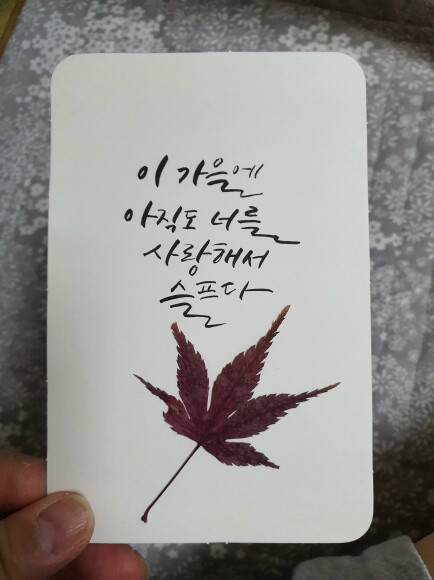 이 가을에
아직도 너를
사랑해서
슬프다